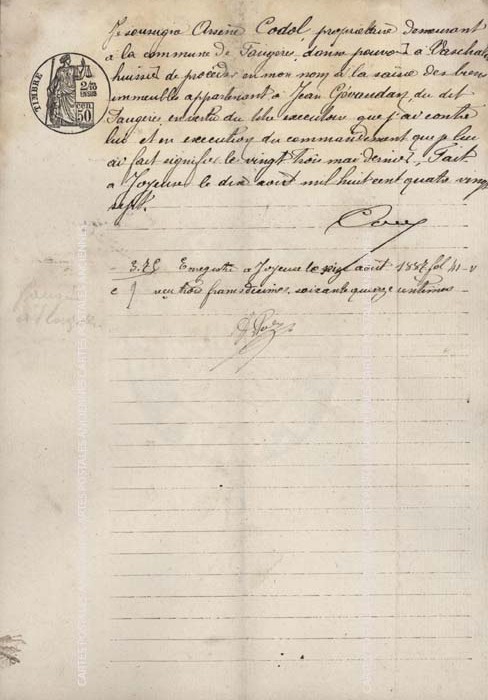 Je soussigné Arsène Codol, propriétaire demeurant
à la commune de Faugères, donne pouvoir à Vaschalde
huissier de procéder en mon nom à la saisie des biens
immeubles appartenant à Jean Gévaudan, du dit
Faugères en vertu du titre exécutoire que j'ai contre
lui et en exécution du commandement que je lui
ai fait signifié le vingt trois mai dernier, Fait
à Joyeuse le dix août mil huit cent quatre vingt
sept.
3.75 Enregistré à Joyeuse le seize août 1887 fol 41 v
c 9 reçu trois francs décimes, soixante quinze centimes
TIMBRE
CEN
50